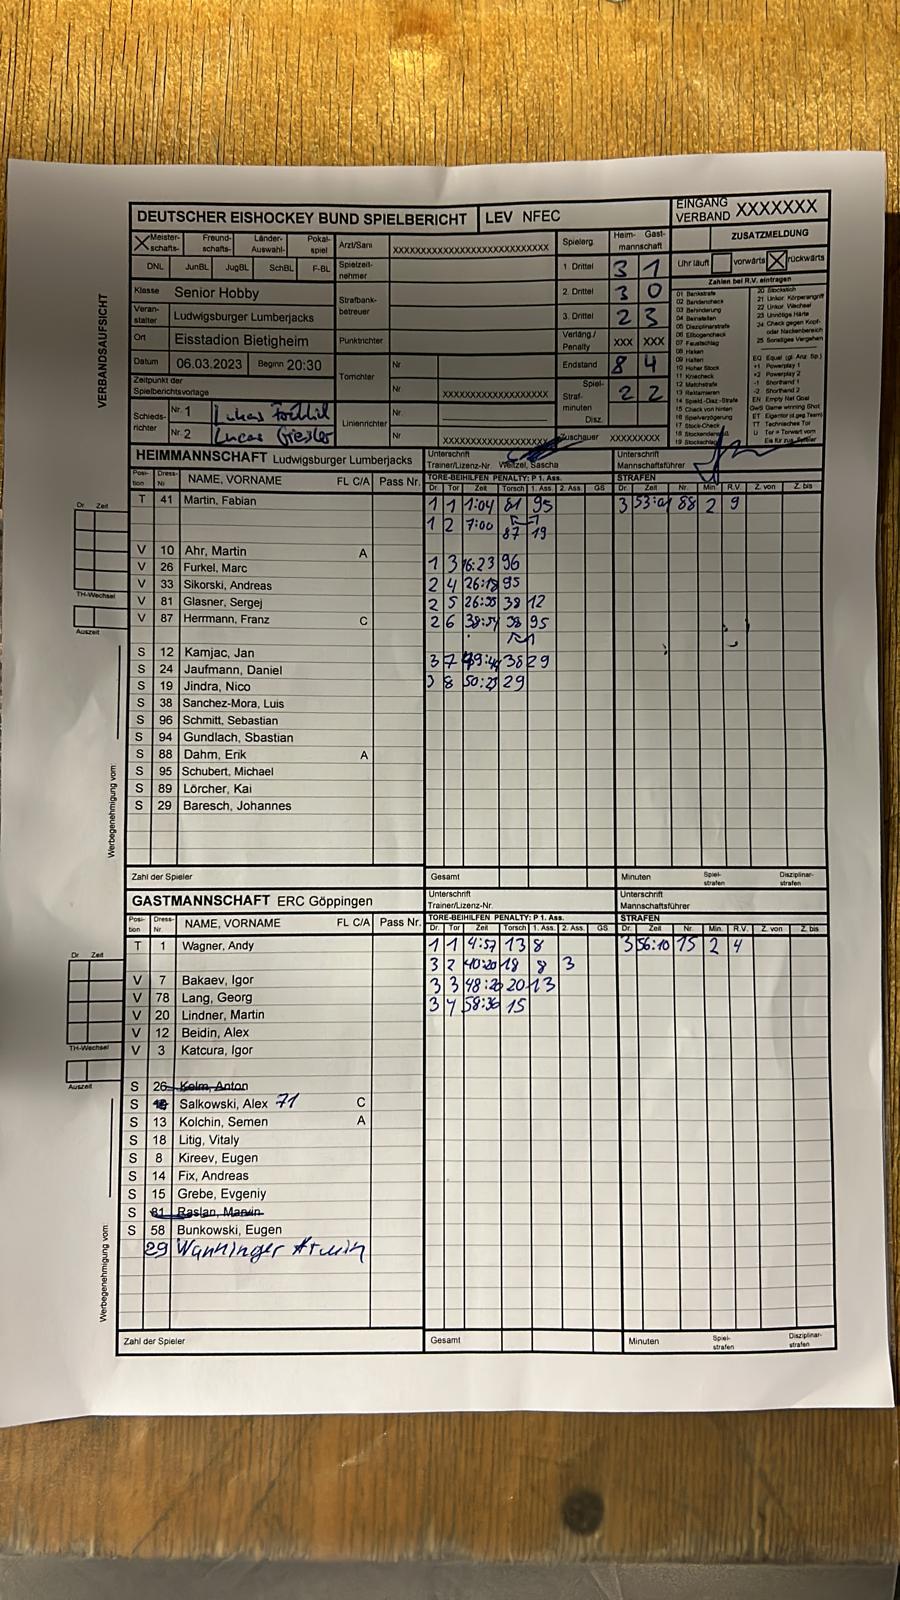 DEUTSCHER EISHOCKEY BUND SPIELBERICHT LEV NFEC EINGANG VERBAND XXXXXXX
Meister-schafts- Freund-schafts- Länder-Auswahl- Pokal-spiel Arzt/Sani XXXXXXXXXXXXXXXXXXXXXXXXXXX Spielerg. Heim- Gast-mannschaft ZUSATZMELDUNG
DNL JunBL JugBL SchBL F-BL Spielzeit-nehmer 1 Drittel 3 1 Uhr läuft vorwärts rückwärts
Zahlen bei R.V. eintragen
Klasse Senior Hobby Strafbank-betreuer 2. Drittel 3 0
Veran-stalter Ludwigsburger Lumberjacks 3. Drittel 2 3
Ort Eisstadion Bietigheim Punktrichter Verläng./ Penalty XXX XXX
Datum 06.03.2023 Beginn 20:30 Torrichter Nr Endstand 8 4
Zeitpunkt der Spielberichtsvorlage Nr. XXXXXXXXXXXXXXXXXX Spiel- Straf-minuten 2 2
Schieds-richter Nr. 1 Lukas Linienrichter Nr. Disz.
Nr. 2 Lucas Nr XXXXXXXXXXXXXXXXXX Zuschauer XXXXXXXXX
01 Bankstrafe
02 Bandencheck
03 Behinderung
04 Beinstellen
05 Disziplinarstrafe
06 Ellbogencheck
07 Faustschlag
08 Haken
09 Halten
10 Hoher Stock
11 Kniecheck
12 Matchstrafe
13 Reklamieren
14 Spield.-Diaz.-Strafe
15 Check von hinten
16 Spielverzögerung
17 Stock-Check
19 Stockschlag
20 Stockstich
21 Unkor. Körperangriff
22 Unkor. Wechsel
23 Unnötige Härte
24 Check gegen Kopf-
oder Nackenbereich
25 Sonstiges Vergehen
EQ Equal (gl. Anz. Sp.)
+1 Powerplay 1
+2 Powerplay 2
-1 Shorthand 1
-2 Shorthand 2
EN Empty Net Goal
GWS Game winning Shot
ET Eigentor (d.geg.Team)
TT Technisches Tor
VERBANDSAUFSICHT
HEIMMANNSCHAFT Ludwigsburger Lumberjacks Unterschrift Trainer/Lizenz-Nr. Weitzel, Sascha Unterschrift Mannschaftsführer
Posi-tion Dress-Nr NAME, VORNAME FL C/A Pass Nr. TORE-BEIHILFEN PENALTY: P 1. Ass. STRAFEN
Dr. Tor Zeit Torsch 1. Ass. 2. Ass. GS Dr. Zeit Nr. Min R.V. Z. von Z. bis
T 41 Martin, Fabian 1 1 1:04 81 95 3 53:01 88 2 9
1 2 7:00 87 19
V 10 Ahr, Martin A
V 26 Furkel, Marc 1 3 16:23 96
V 33 Sikorski, Andreas 2 4 26:18 95
V 81 Glasner, Sergej 2 5 26:55 38 12
V 87 Herrmann, Franz C 2 6 38:54 38 95
S 12 Kamjac, Jan
S 24 Jaufmann, Daniel 3 7 49:44 38 29
S 19 Jindra, Nico 3 8 50:23 29
S 38 Sanchez-Mora, Luis
S 96 Schmitt, Sebastian
S 94 Gundlach, Sbastian
S 88 Dahm, Erik A
S 95 Schubert, Michael
S 89 Lörcher, Kai
S 29 Baresch, Johannes
Dr Zeit
TH-Wechsel
Auszeit
Werbegenehmigung vom:
Zahl der Spieler Gesamt Minuten Spiel-strafen Disziplinar-strafen
GASTMANNSCHAFT ERC Göppingen Unterschrift Trainer/Lizenz-Nr. Unterschrift Mannschaftsführer
Posi-tion Dress-Nr. NAME, VORNAME FL C/A Pass Nr. TORE-BEIHILFEN PENALTY: P 1. Ass. STRAFEN
Dr. Tor Zeit Torsch 1. Ass. 2. Ass. GS Dr. Zeit Nr. Min. R.V. Z. von Z. bis
T 1 Wagner, Andy 1 1 4:57 13 8 3 56:10 15 2 4
3 2 40:20 18 8 3
V 7 Bakaev, Igor 3 3 48:20 20 13
V 78 Lang, Georg 3 4 58:36 15
V 20 Lindner, Martin
V 12 Beidin, Alex
V 3 Katcura, Igor
S 26 Kelm, Anton
S Salkowski, Alex 71 C
S 13 Kolchin, Semen A
S 18 Litig, Vitaly
S 8 Kireev, Eugen
S 14 Fix, Andreas
S 15 Grebe, Evgeniy
S 81 Raslan, Marvin
S 58 Bunkowski, Eugen
29 Wanninger Armin
Dr Zeit
TH-Wechsel
Auszeit
Werbegenehmigung vom:
Zahl der Spieler Gesamt Minuten Spiel-strafen Disziplinar-strafen